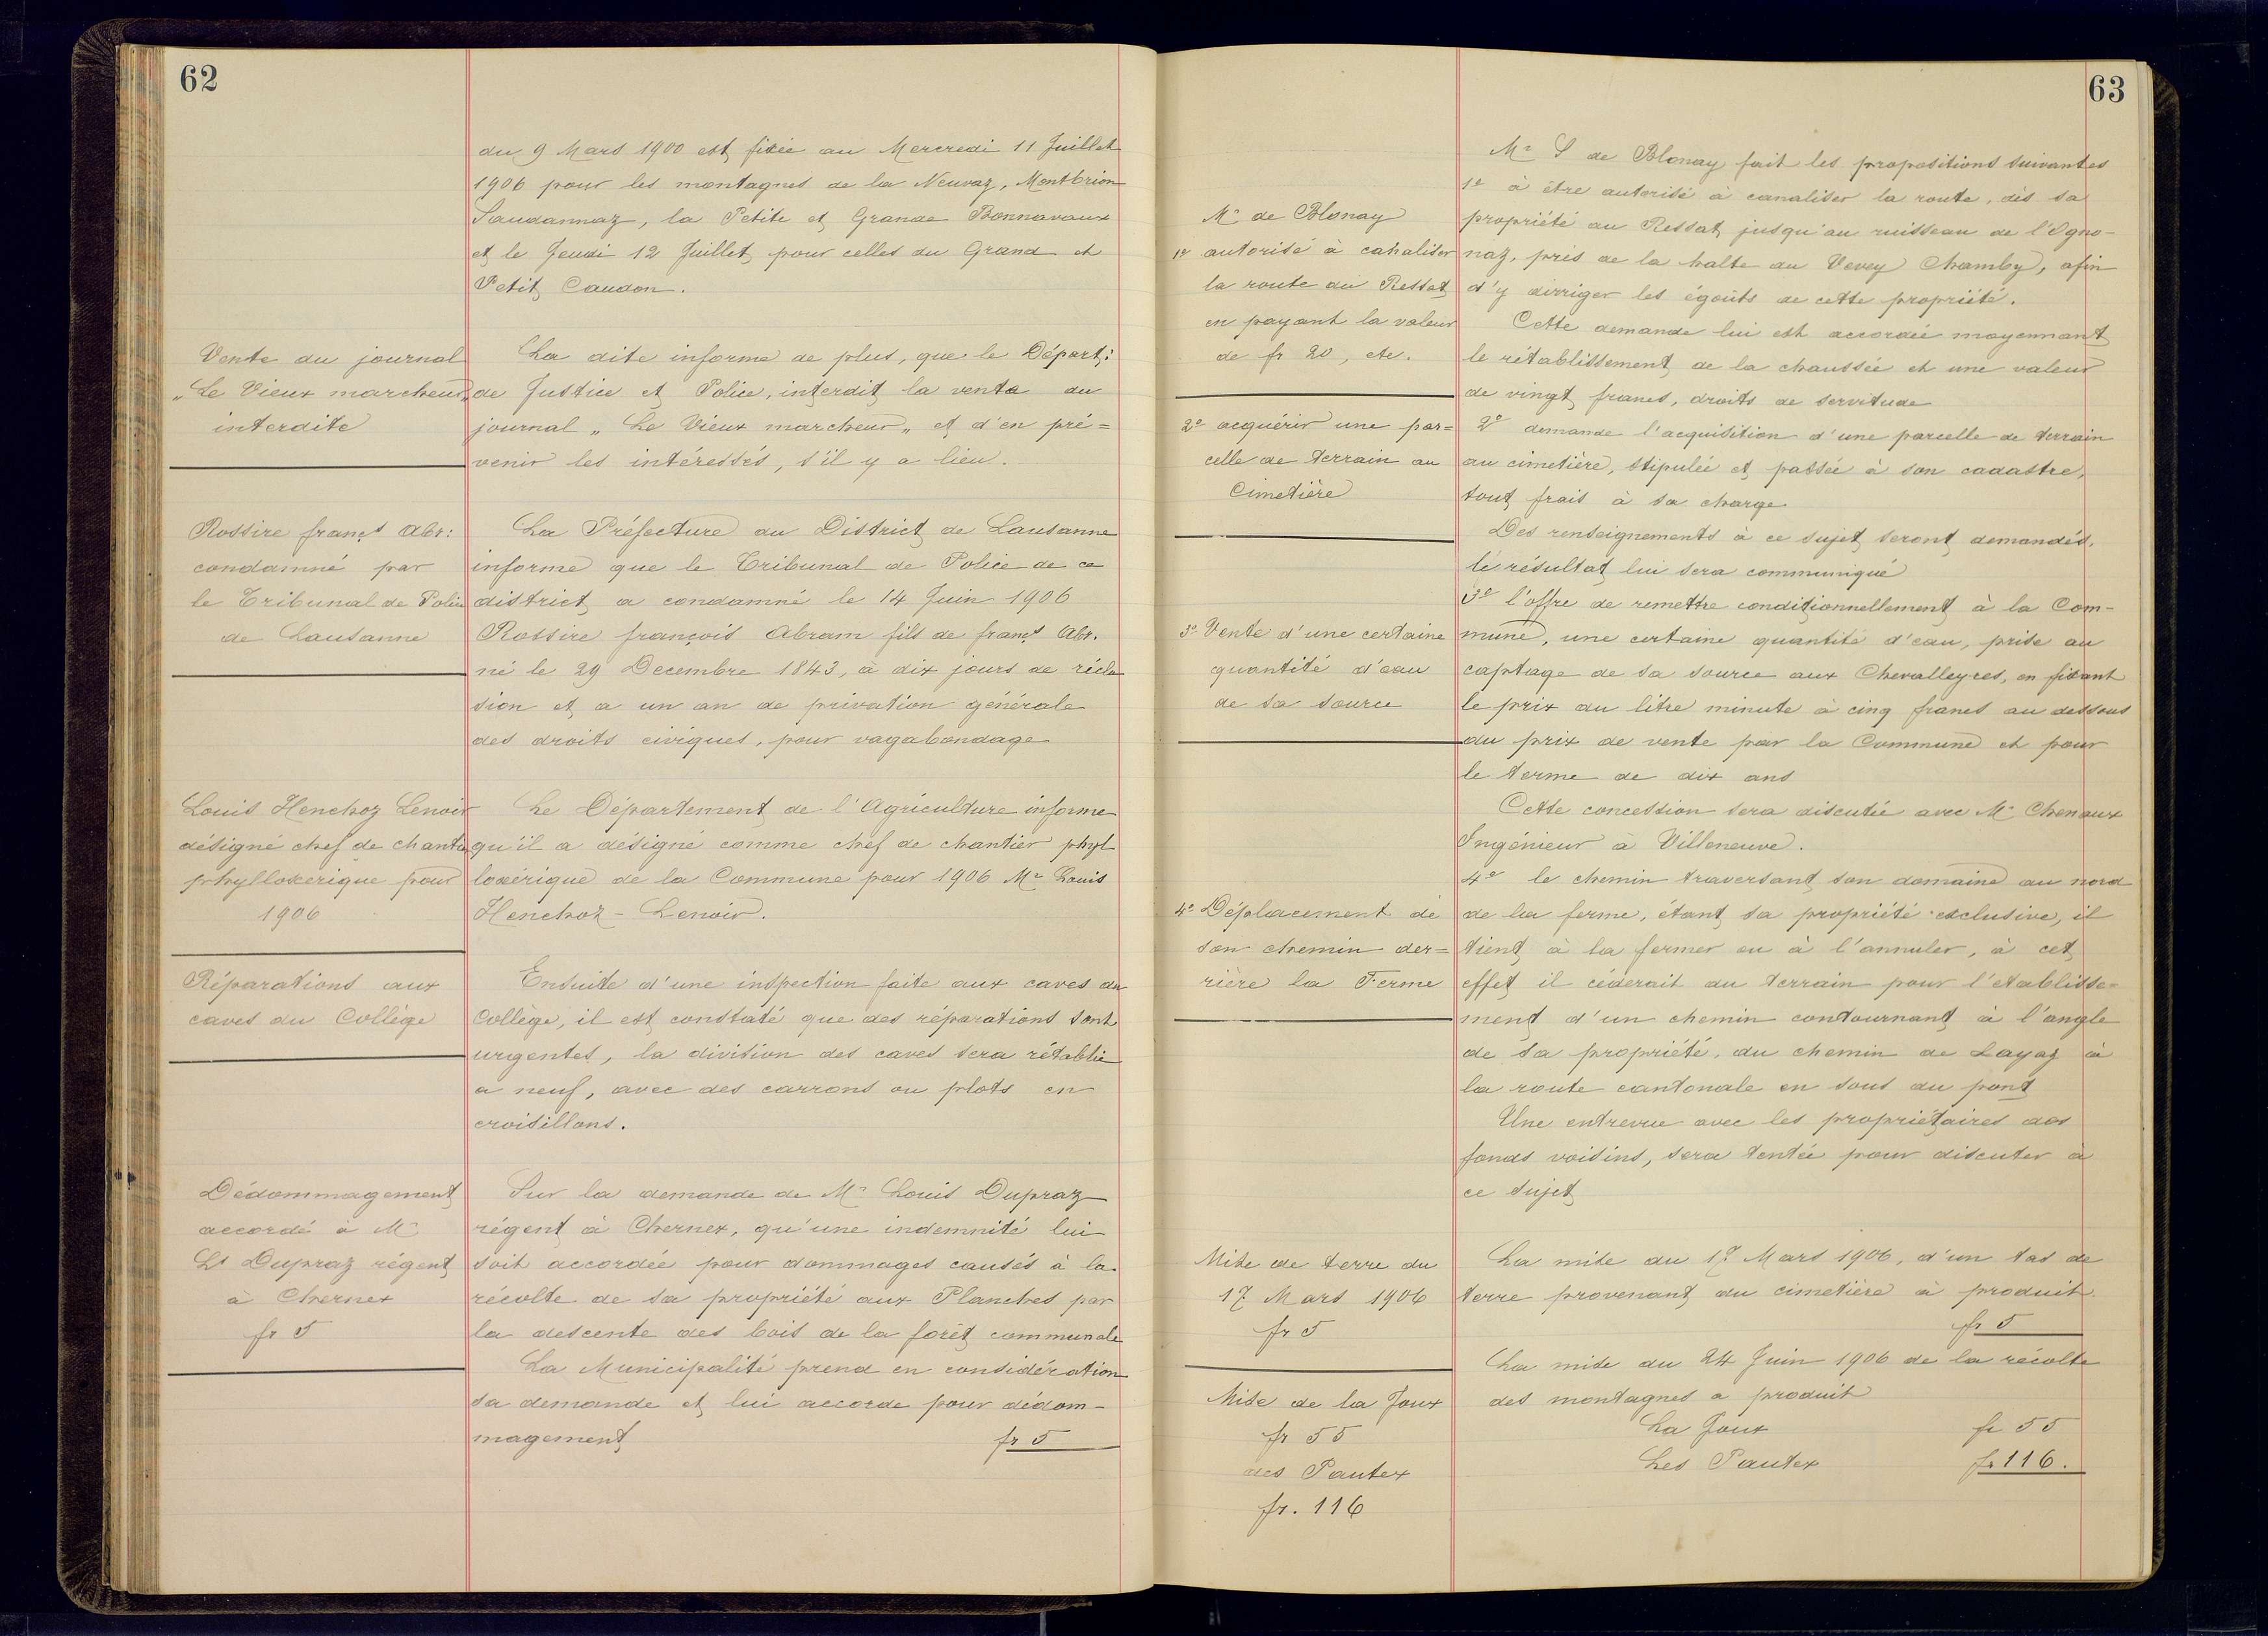 62
du 9 Mars 1900 est fixée au Mercredi 11 Juillet
1906 pour les montagnes de la Neuvaz, Montbrion
Saudannaz, la Petite et Grande Bonnavaux
et le Jeudi 12 Juillet pour celles du Grand et
Petit Caudon.
Vente du journal
„Le Vieux marcheur„
interdite
La dite informe de plus, que le Départ:
de Justice et Police, interdit la vente du
journal „ Le Vieux marcheur „ et d'en pré=
venir les intéressés, s'il y a lieu.
Rossire franç.s Abr:
condamné par
le Tribunal de Police
de Lausanne
La Préfecture du District de Lausanne
informe que le Tribunal de Police de ce
district a condamné le 14 Juin 1906
Rossire françois Abram fils de franç.s Abr.
né le 29 Decembre 1843, à dix jours de réclu
sion et a un an de privation générale
des droits civiques, pour vagabondage
Louis Henchoz Lenoir
désigné chef de chantier
phylloxerique pour
1906
Le Département de l'Agriculture informe
qu'il a désigné comme chef de chantier phyl
loxérique de la Commune pour 1906 Mr Louis
Henchoz - Lenoir.
Réparations aux
caves du Collège
Ensuite d'une inspection faite aux caves du
Collège, il est constaté que des réparations sont
urgentes, la division des caves sera rétablie
a neuf, avec des carrons ou plots en
croisillons.
Dédommagement
accordé à Mr
Ls Dupraz régent
à Chernex
fr 5
Sur la demande de Mr Louis Dupraz
régent à Chernex, qu'une indemnité lui
soit accordée pour dommages causés à la
récolte de sa propriété aux Planches par
la descente des bois de la forêt communale
La Municipalité prend en considération
sa demande et lui accorde pour dédom-
magement fr 5
63
Mr de Blonay
1e autorisé à canaliser
la route du Ressat
en payant la valeur
de fr 20, etc.
Mr S de Blonay fait les propositions suivantes
1e à être autorisé à canaliser la route, dès sa
propriété au Ressat jusqu'au ruisseau de l'Ogno-
naz, près de la halte du Vevey Chamby, afin
d'y dirriger les égoûts de cette propriété.
Cette demande lui est accordée moyennant
le rétablissement de la chaussée et une valeur
de vingt francs, droits de servitude
2e acquérir une par=
celle de terrain au
Cimetière
2e demande l'acquisition d'une parcelle de terrain
au cimetière, stipulée et passée à son cadastre,
tout frais à sa charge
Des renseignements à ce sujet seront demandés,
le résultat lui sera communiqué
3e Vente d'une certaine
quantité d'eau
de sa source
3e l'offre de remettre conditionnellement à la Com-
mune, une certaine quantité d'eau, prise au
captage de sa source aux Chevalleyres, en fixant
le prix du litre minute à cinq francs au dessous
du prix de vente par la Commune et pour
le terme de dix ans
Cette concession sera discutée avec Mr Chenaux
Ingénieur à Villeneuve.
4e Déplacement de
son chemin der=
rière la Ferme
4e le chemin traversant son domaine au nord
de la ferme, étant sa propriété exclusive, il
tient à la fermer ou à l'annuler, à cet
effet il céderait du terrain pour l'etablisse-
ment d'un chemin contournant à l'angle
de sa propriété, du chemin de Layaz à
la route cantonale en sous du pont
Une entrevue avec les propriétaires des
fonds voisins, sera tentée pour discuter à
ce sujet
Mise de terre du
17 Mars 1906
fr 5
La mise du 17 Mars 1906, d'un tas de
terre provenant du cimetière à produit
fr 5
Mise de la Joux
fr 55
des Pautex
fr. 116
La mise du 24 Juin 1906 de la récolte
des montagnes a produit
La Joux fr 55
Les Pautex fr 116.